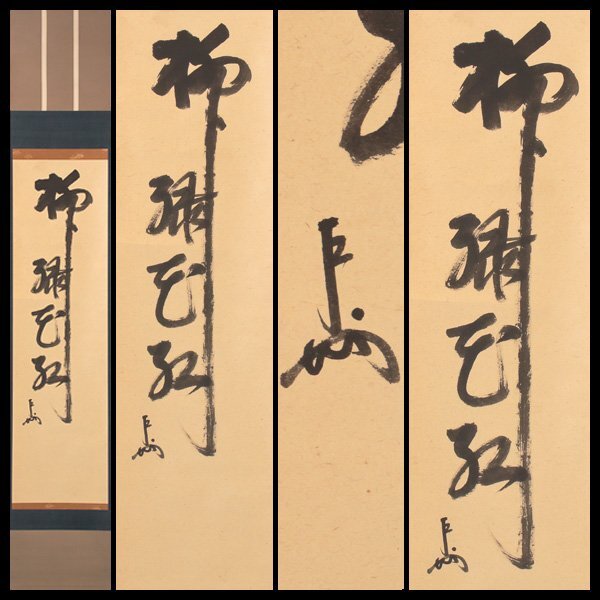 柳緑花紅
柳緑花紅
柳緑花紅